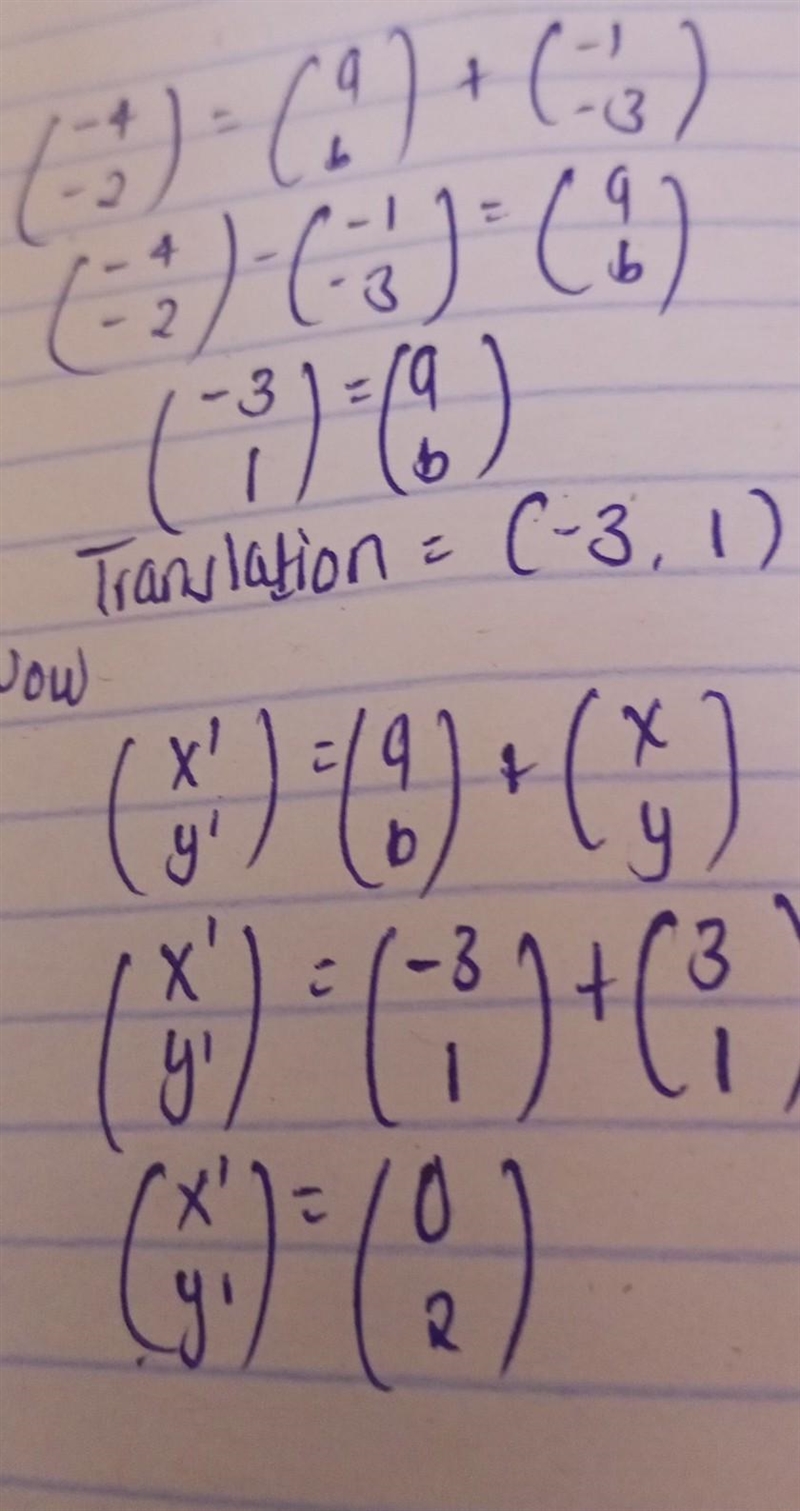 (-4 -2) = (a b) + (-1 -3)
(-4 -2) - (-1 -3) = (a b)
(-3 1) = (a b)
Translation = (-3, 1)
Now
(x' y') = (a b) + (x y)
(x' y') = (-3 1) + (3 1)
(x' y') = (0 2)